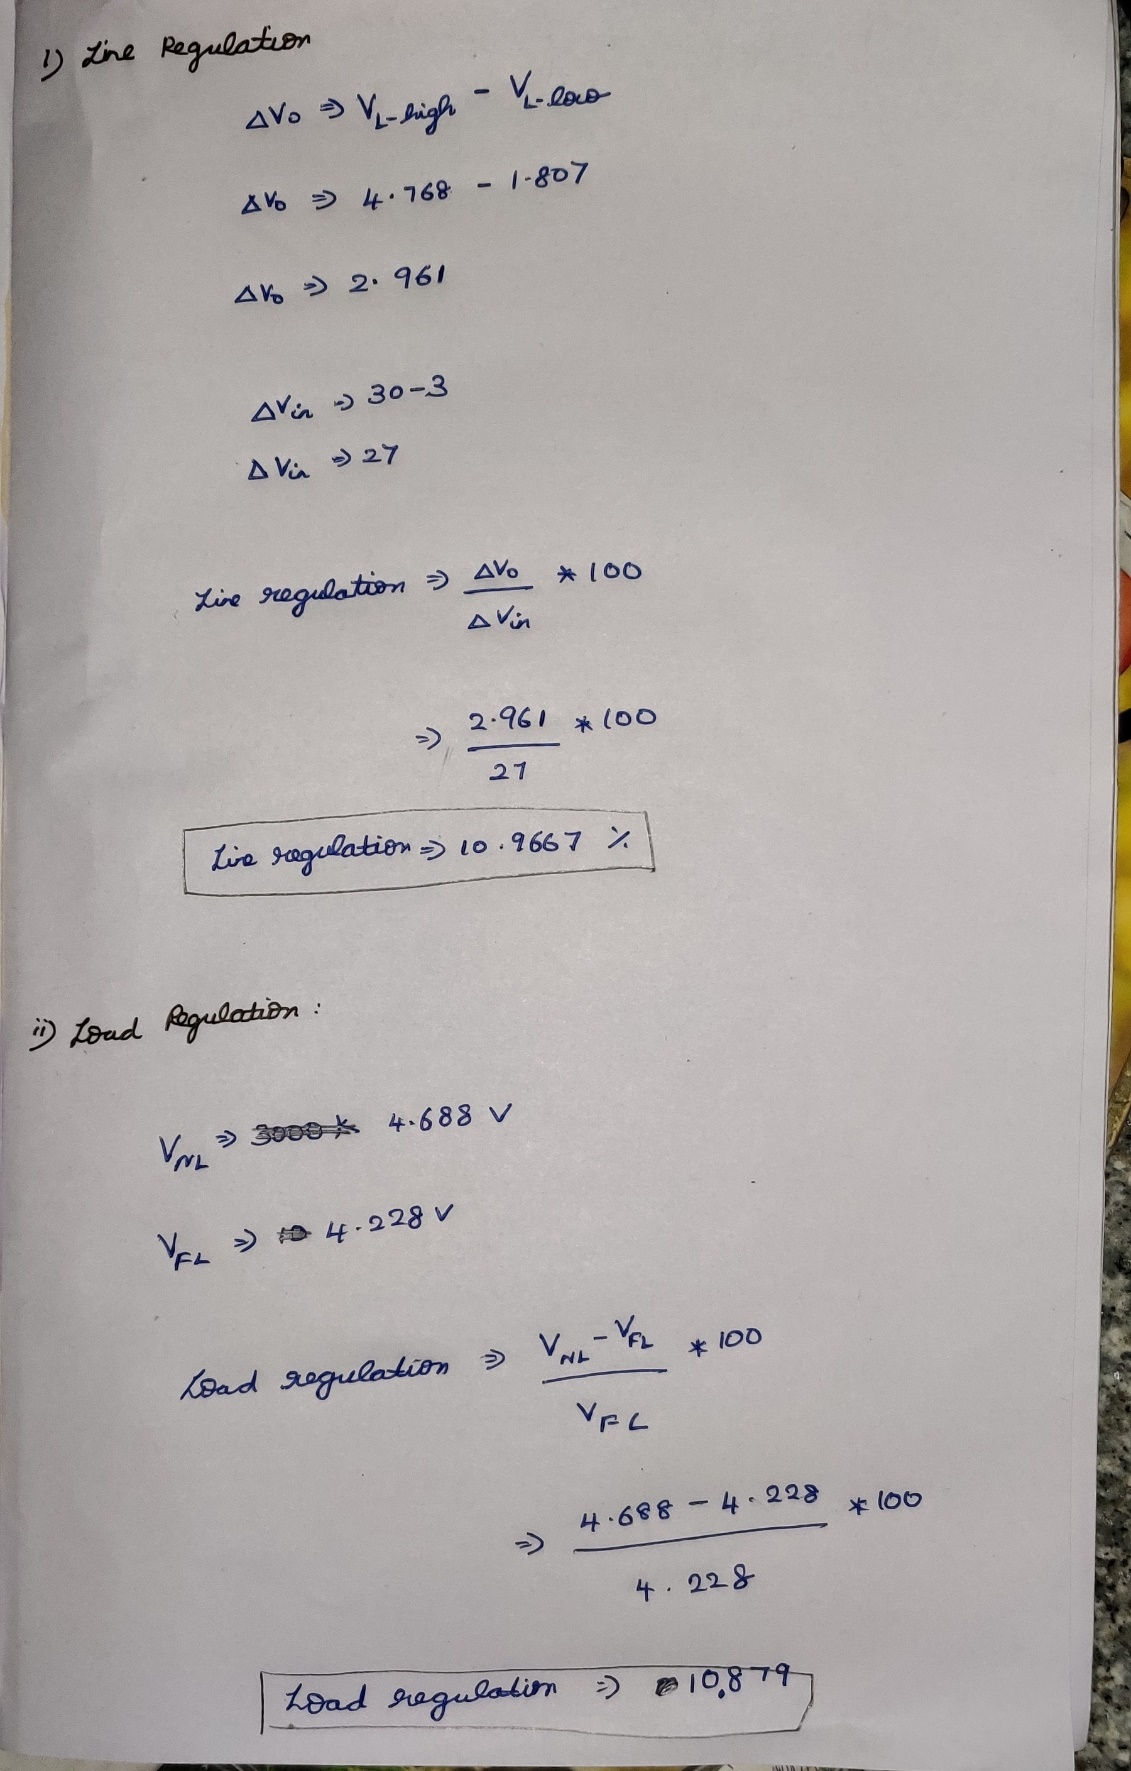 i) Line Regulation
ΔVo ⇒ VL-high - VL-low
ΔVo ⇒ 4.768 - 1.807
ΔVo ⇒ 2.961
ΔVin ⇒ 30-3
ΔVin ⇒ 27
Line regulation ⇒ ΔVo * 100
ΔVin
⇒ 2.961 * 100
27
Line regulation ⇒ 10.9667 %
ii) Load Regulation :
VNL ⇒ 4.688 V
VFL ⇒ 4.228 V
Load regulation ⇒ VNL - VFL * 100
VFL
⇒ 4.688 - 4.228 * 100
4.228
Load regulation ⇒ 10.879